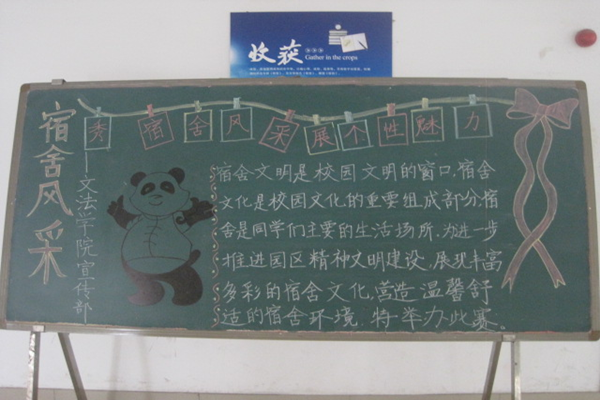 收获
Gather in the crops
秀宿舍风采展个性魅力
宿舍风采
——文法学院宣传部
宿舍文明是校园文明的窗口,宿舍
文化是校园文化的重要组成部分,宿
舍是同学们主要的生活场所,为进一步
推进园区精神文明建设,展现丰富
多彩的宿舍文化,营造温馨舒
适的宿舍环境,特举办此赛。